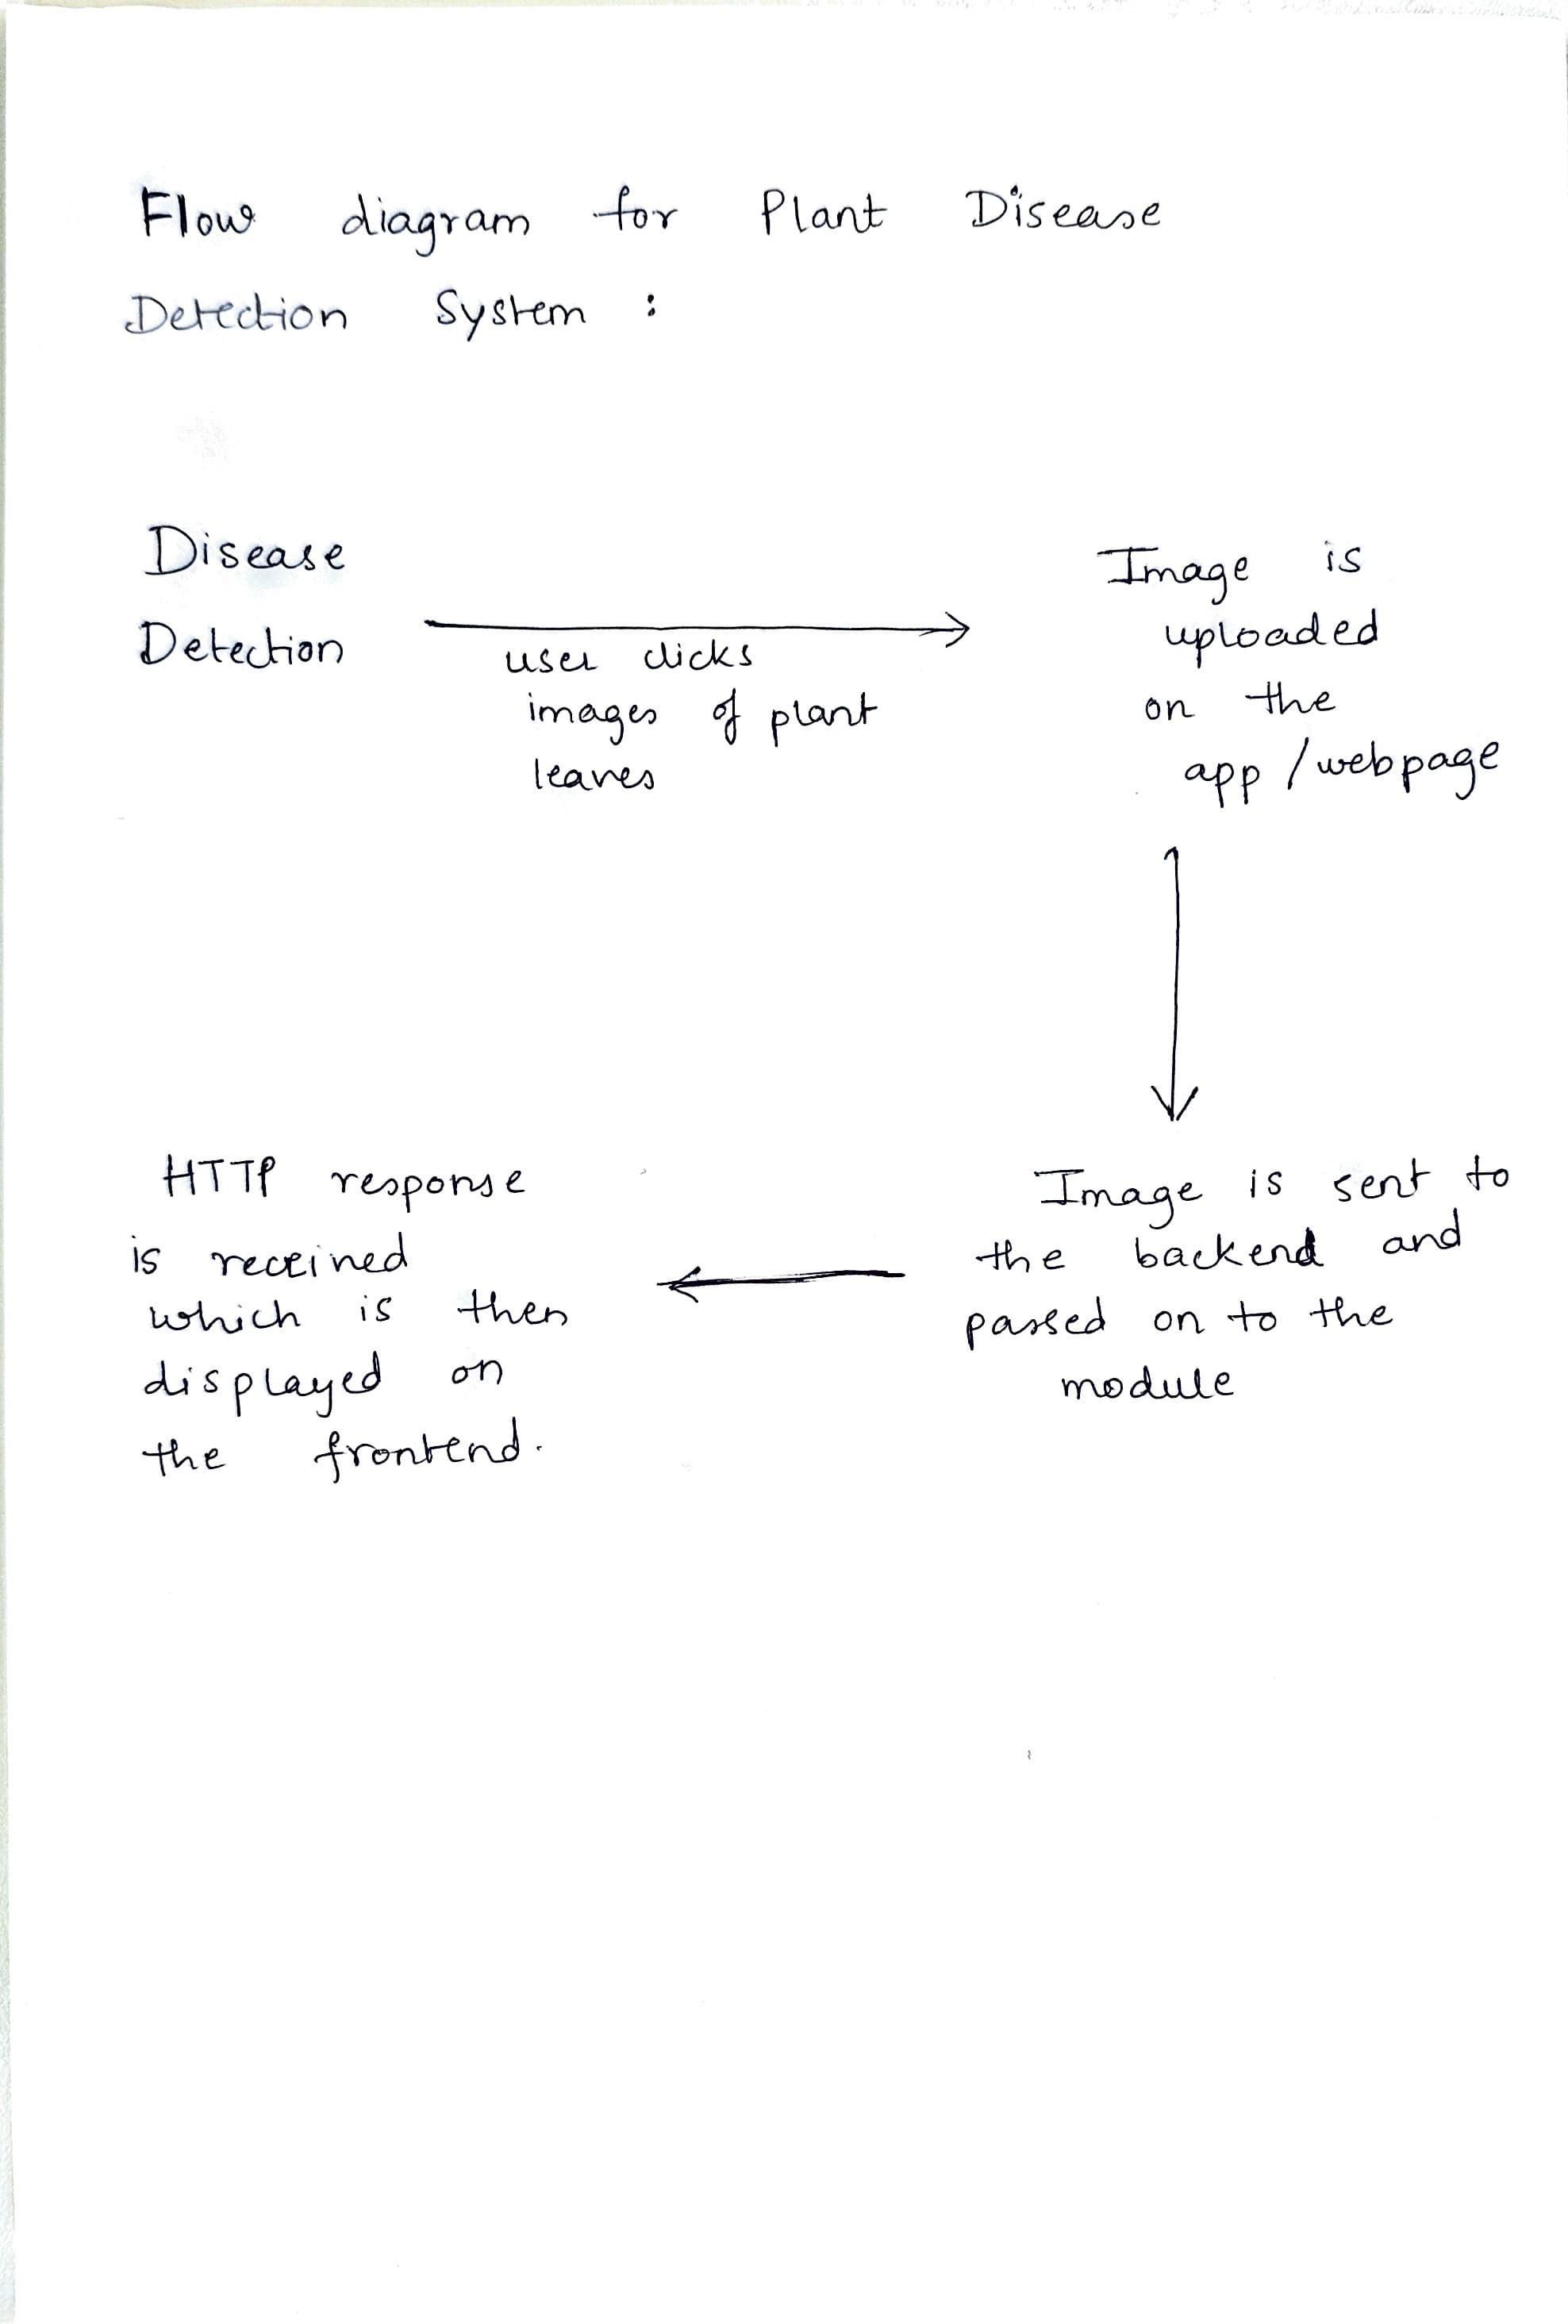 Flow diagram for Plant Disease
Detection System :
Disease
Detection
user clicks
images of plant
leaves
Image is
uploaded
on the
app / webpage
Image is sent to
the backend and
passed on to the
module
HTTP response
is received
which is then
displayed on
the frontend.